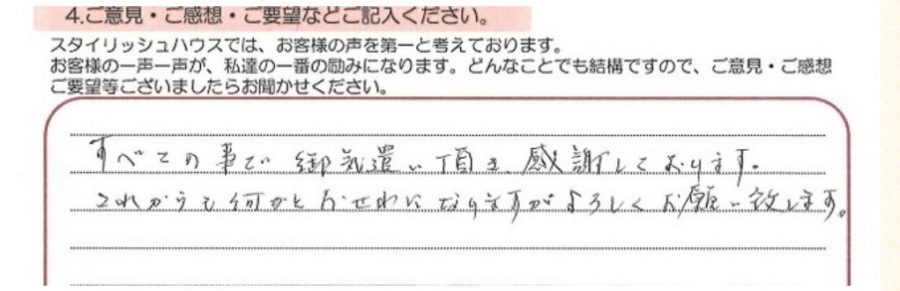 4.ご意見・ご感想・ご要望などご記入ください。
スタイリッシュハウスでは、お客様の声を第一と考えております。
お客様の一声一声が、私達の一番の励みになります。どんなことでも結構ですので、ご意見・ご感想
ご要望等ございましたらお聞かせください。
すべての事で御気遣い頂き、感謝しております。
これからも何かとおせわになりますがよろしくお願い致します。